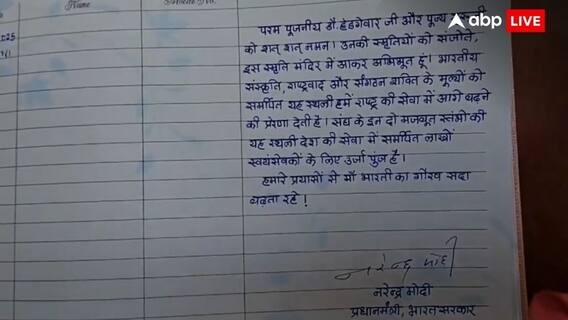 Name
abp LIVE
025
परम पूजनीय डॉ. हेडगेवार जी और पूज्य
को शत् शत् नमन। उनकी स्मृतियों को संजोते,
इस स्मृति मंदिर में आकर अभिभूत हूं। भारतीय
संस्कृति, राष्ट्रवाद और संगठन शक्ति के मूल्यों को
समर्पित यह स्थली हमें राष्ट्र की सेवा में आगे बढ़ने
की प्रेरणा देती है। संघ के इन दो मजबूत स्तंभों की
यह स्थली देश की सेवा में समर्पित लाखों
स्वयंसेवकों के लिए ऊर्जा पुंज है।
हमारे प्रयासों से माँ भारती का गौरव सदा
बढ़ता रहे!
नरेन्द्र मोदी
नरेन्द्र मोदी
प्रधानमंत्री, भारत सरकार